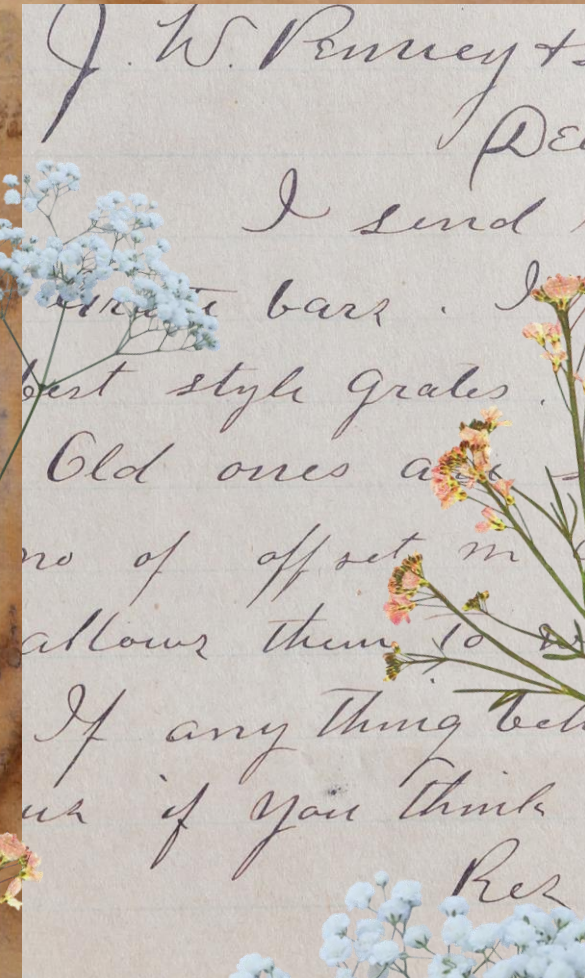 J. W. Penney &
De
I send
grate bars. I
best style grates.
Old ones are s
no of off set in
allows them to
If any thing bet
us if you think
Res